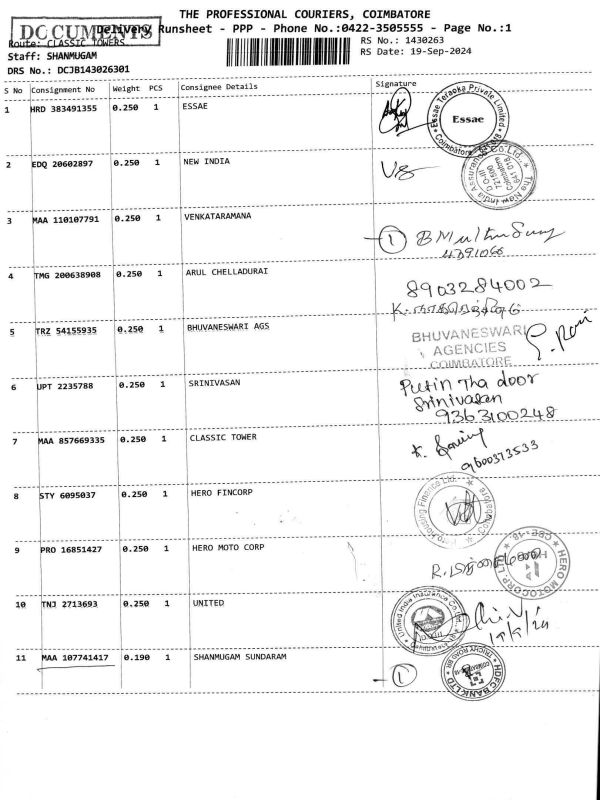 THE PROFESSIONAL COURIERS, COIMBATORE
DOCUMENTS
Delivery Runsheet - PPP - Phone No.:0422-3505555 - Page No.:1
Route: CLASSIC TOWERS
RS No.: 1430263
Staff: SHANMUGAM
RS Date: 19-Sep-2024
DRS No.: DCJB143026301
S No Consignment No Weight PCS Consignee Details Signature
1 HRD 383491355 0.250 1 ESSAE
Essae Teraoka Private Limited
Essae
Coimbatore
2 EDQ 20602897 0.250 1 NEW INDIA
The New India Assurance Co. Ltd.
D.O-III
721500
Coimbatore
641 018
3 MAA 110107791 0.250 1 VENKATARAMANA
1
4 TMG 200638908 0.250 1 ARUL CHELLADURAI
8903284002
5 TRZ 54155935 0.250 1 BHUVANESWARI AGS
BHUVANESWARI
AGENCIES
COIMBATORE
6 UPT 2235788 0.250 1 SRINIVASAN
Putin Tha door
Srinivasan
9363100248
7 MAA 857669335 0.250 1 CLASSIC TOWER
9600373533
8 STY 6095037 0.250 1 HERO FINCORP
Hero Housing Finance Ltd.
9 PRO 16851427 0.250 1 HERO MOTO CORP
HERO MOTOCORP LTD
CBE-18
10 TNJ 2713693 0.250 1 UNITED
United India Insurance Co. Ltd.
11 MAA 107741417 0.190 1 SHANMUGAM SUNDARAM
1
HDFC BANK LTD
TRICHY ROAD BR